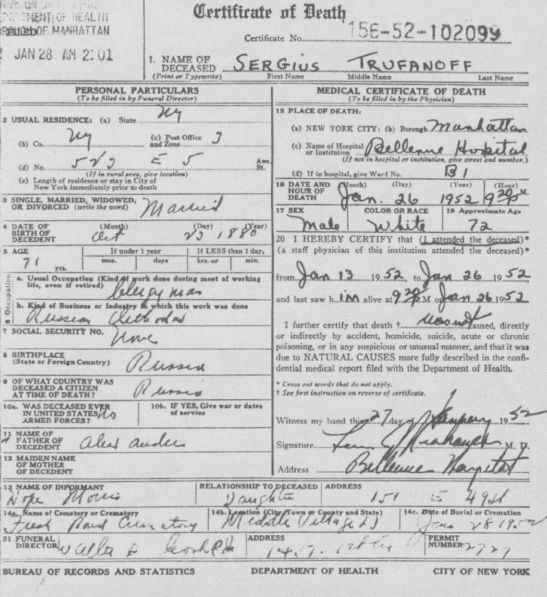 DEPARTMENT OF HEALTH
BOROUGH OF MANHATTAN
JAN 28 AM 2:01
Certificate of Death
Certificate No. 156-52-102099
1. NAME OF DECEASED SERGIUS TRUFANOFF
(Print or Typewrite) First Name Middle Name Last Name
PERSONAL PARTICULARS
(To be filled in by Funeral Director)
2 USUAL RESIDENCE: (a) State NY
(b) Co. NY (c) Post Office and Zone 3
(d) No. 523 E 5 Ave. St.
(If in rural area, give location)
(e) Length of residence or stay in City of New York immediately prior to death
3 SINGLE, MARRIED, WIDOWED, OR DIVORCED (write the word) Married
4 DATE OF BIRTH OF DECEDENT (Month) (Day) (Year) Oct 23 1880
5 AGE 71 yrs. If under 1 year mos. days If LESS than 1 day, hrs. or min.
6 Occupation
a. Usual Occupation (Kind of work done during most of working life, even if retired) Clergyman
b. Kind of Business or Industry in which this work was done Russian Orthodox
7 SOCIAL SECURITY NO. None
8 BIRTHPLACE (State or Foreign Country) Russia
9 OF WHAT COUNTRY WAS DECEASED A CITIZEN AT TIME OF DEATH? Russia
10a. WAS DECEASED EVER IN UNITED STATES ARMED FORCES? No 10b. IF YES, Give war or dates of service
11 NAME OF FATHER OF DECEDENT Alexander
12 MAIDEN NAME OF MOTHER OF DECEDENT
MEDICAL CERTIFICATE OF DEATH
(To be filled in by the Physician)
15 PLACE OF DEATH:
(a) NEW YORK CITY: (b) Borough Manhattan
(c) Name of Hospital or Institution Bellevue Hospital
(If not in hospital or institution, give street and number.)
(d) If in hospital, give Ward No. B1
16 DATE AND HOUR OF DEATH (Month) (Day) (Year) (Hour) Jan. 26 1952 9 30 PM
17 SEX Male COLOR OR RACE White 19 Approximate Age 72
20 I HEREBY CERTIFY that (I attended the deceased)*
(a staff physician of this institution attended the deceased)*
from Jan 13 1952 to Jan 26 1952
and last saw him alive at 9 30 P M on Jan 26 1952
I further certify that death † was not caused, directly
or indirectly by accident, homicide, suicide, acute or chronic
poisoning, or in any suspicious or unusual manner, and that it was
due to NATURAL CAUSES more fully described in the confi-
dential medical report filed with the Department of Health.
* Cross out words that do not apply.
† See first instruction on reverse of certificate.
Witness my hand this 27 day of January 1952
Signature M. D.
Address Bellevue Hospital
13 NAME OF INFORMANT Hope Morris RELATIONSHIP TO DECEASED Daughter ADDRESS 151 E 49 St
14a. Name of Cemetery or Crematory Fresh Pond Crematory 14b. Location (City, Town or County and State) Middle Village LI 14c. Date of Burial or Cremation Jan 28 1952
21 FUNERAL DIRECTOR Walter B ADDRESS PERMIT NUMBER 2727
BUREAU OF RECORDS AND STATISTICS DEPARTMENT OF HEALTH CITY OF NEW YORK